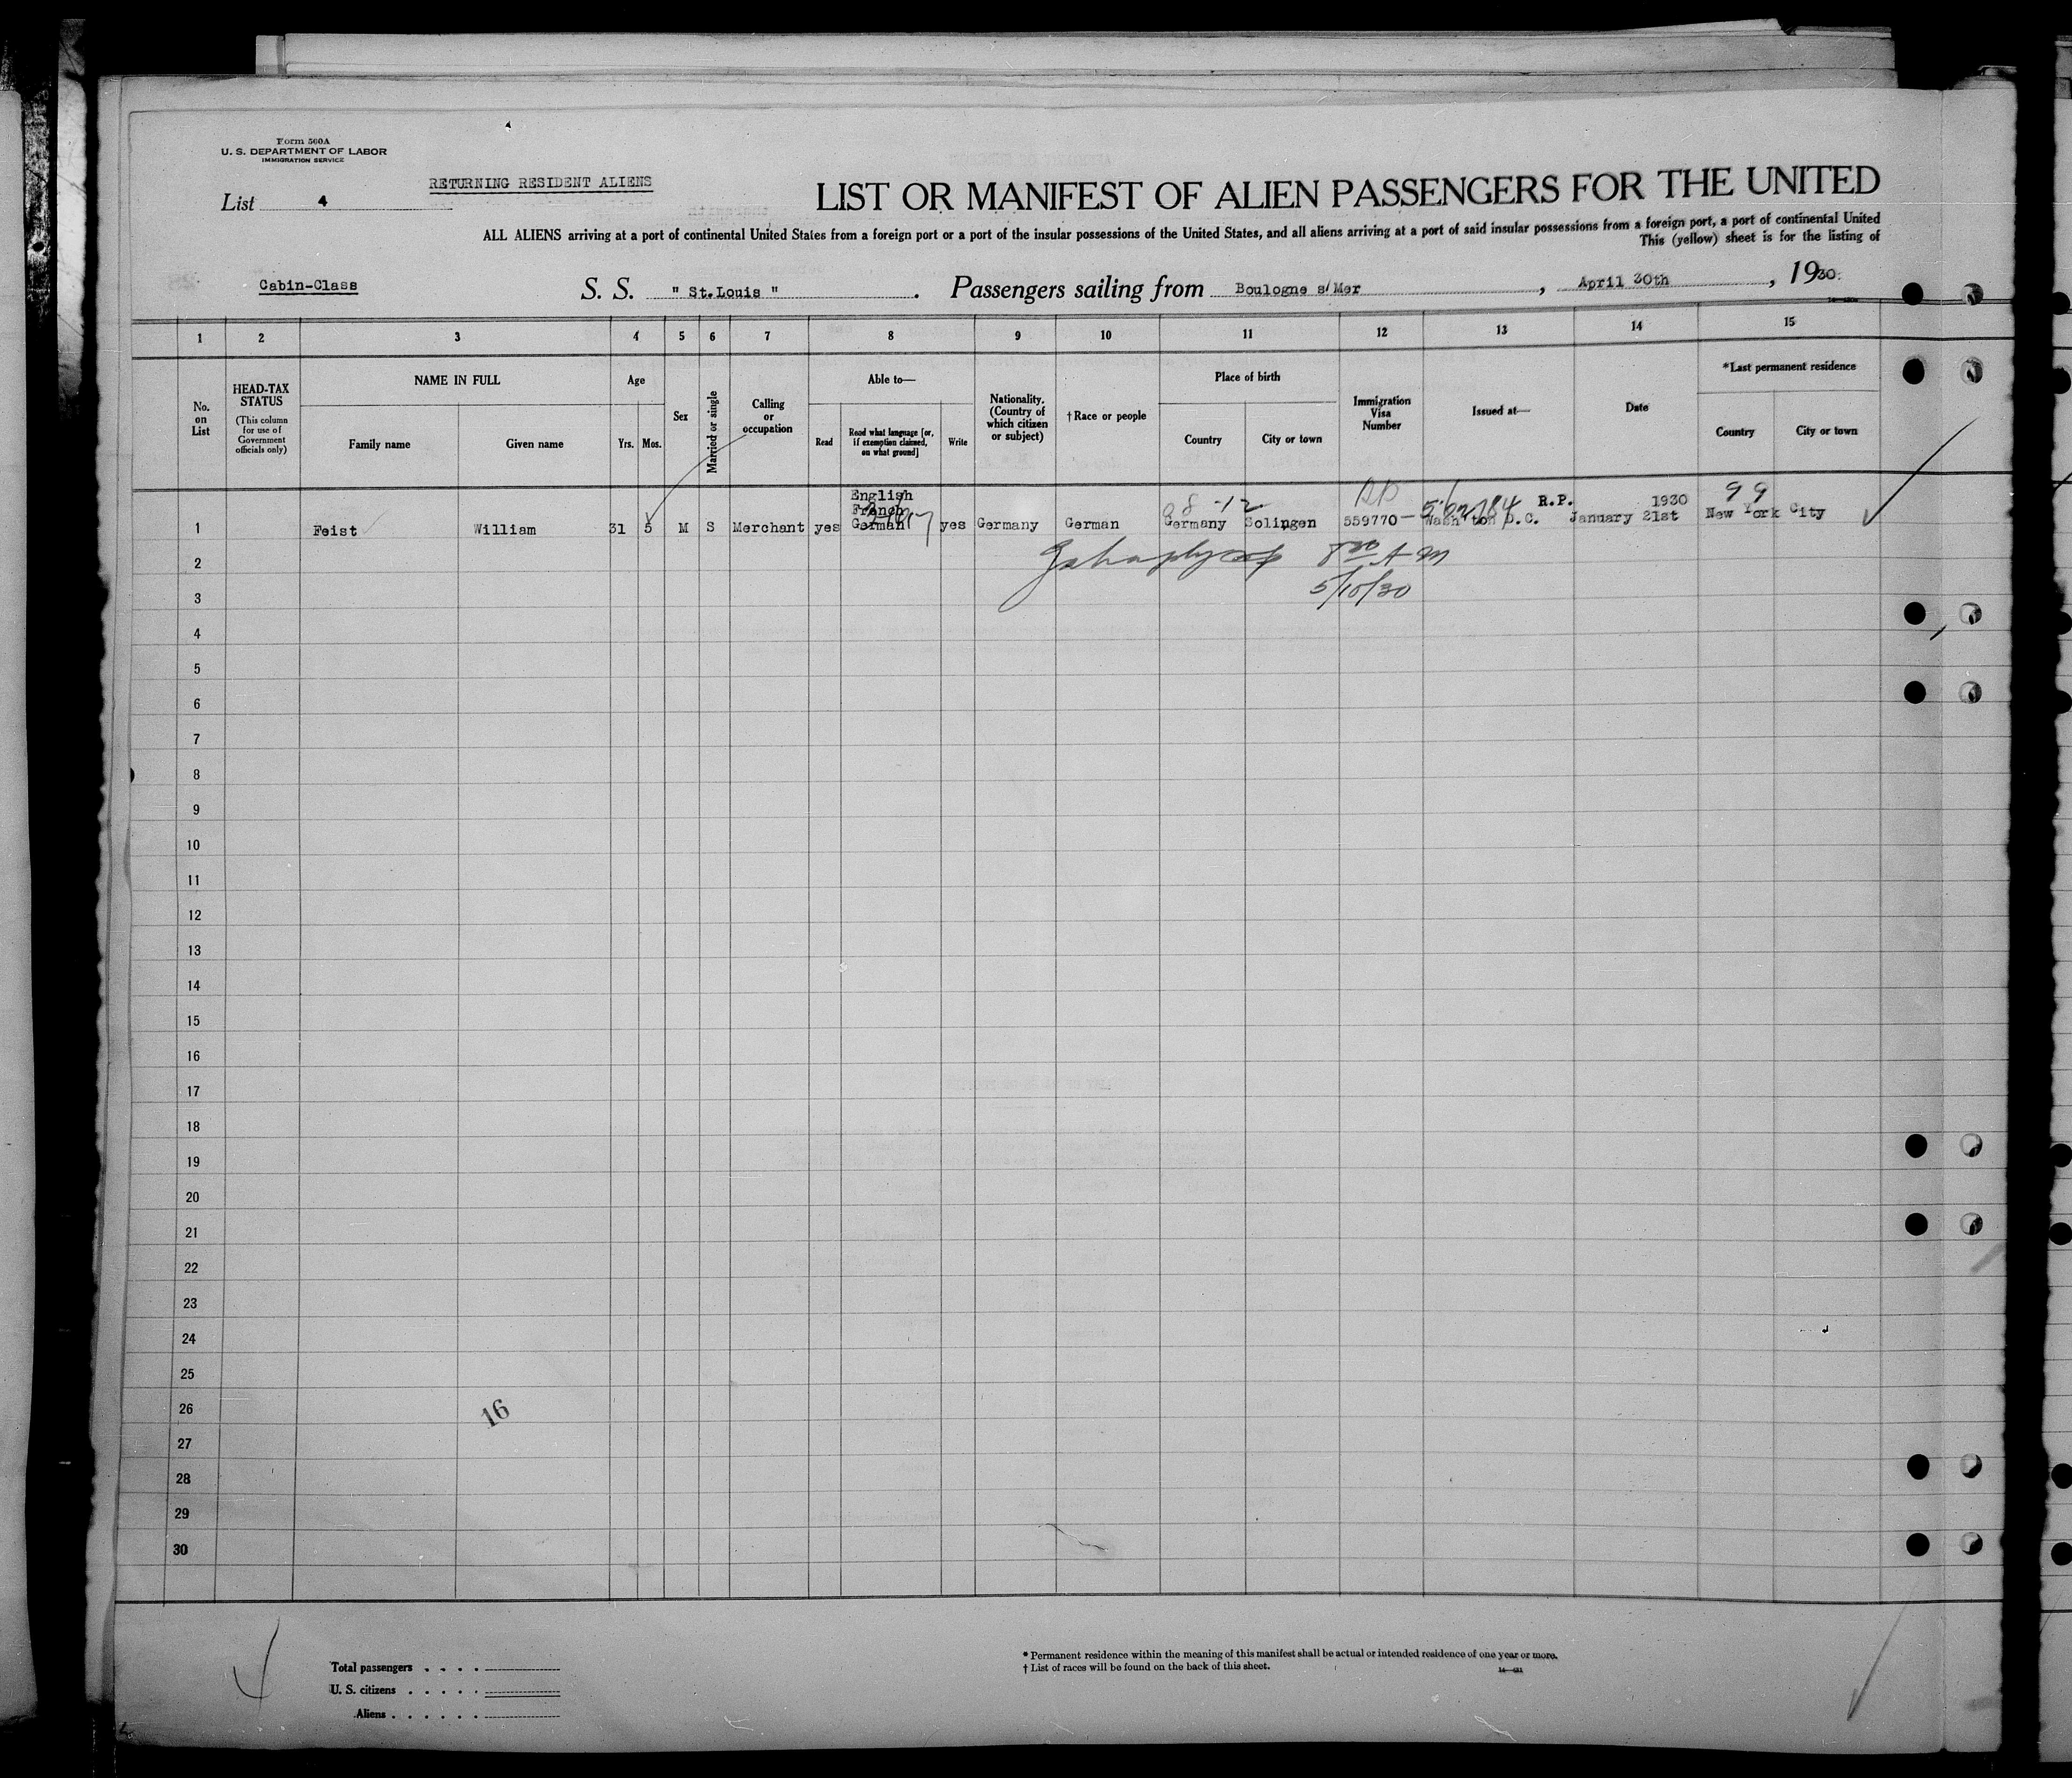 Form 560A
U. S. DEPARTMENT OF LABOR
IMMIGRATION SERVICE
List 4
RETURNING RESIDENT ALIENS
LIST OR MANIFEST OF ALIEN PASSENGERS FOR THE UNITED
ALL ALIENS arriving at a port of continental United States from a foreign port or a port of the insular possessions of the United States, and all aliens arriving at a port of said insular possessions from a foreign port, a port of continental United
This (yellow) sheet is for the listing of
Cabin-Class S. S. " St.Louis ". Passengers sailing from Boulogne s/Mer, April 30th, 1930.
1 2 3 4 5 6 7 8 9 10 11 12 13 14 15
No. on List
HEAD-TAX STATUS
(This column for use of Government officials only)
NAME IN FULL
Family name Given name
Age
Yrs. Mos.
Sex
Married or single
Calling or occupation
Able to—
Read
Read what language [or, if exemption claimed, on what ground]
Write
Nationality. (Country of which citizen or subject)
† Race or people
Place of birth
Country City or town
Immigration Visa Number
Issued at—
Date
*Last permanent residence
Country City or town
English
French
98 -12
R.P. 1930
99
1 Feist William 31 5 M S Merchant yes German yes Germany German Germany Solingen 559770 Wash'ton D.C. January 21st New York City
2
8 30 A M
3
5/10/30
4
5
6
7
8
9
10
11
12
13
14
15
16
17
18
19
20
21
22
23
24
25
26
16
27
28
29
30
Total passengers . . . .
U. S. citizens . . . . .
Aliens . . . . . .
* Permanent residence within the meaning of this manifest shall be actual or intended residence of one year or more.
† List of races will be found on the back of this sheet.